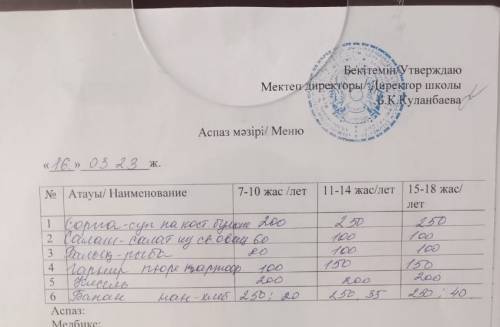 Бекітемін/Утверждаю
Мектеп директоры/ Директор школы
Б.К.Куланбаева
Аспаз мәзірі/ Меню
«16» 03 23 ж.
№ Атауы/ Наименование 7-10 жас /лет 11-14 жас/лет 15-18 жас/ лет
1 Сорпа-суп на кост бульоне 200 250 250
2 Салат-салат из св овощ 60 100 100
3 Балық-рыба 80 100 100
4 Гарнир пюре картоф 100 150 150
5 Кисель 200 200 200
6 Банан нан-хлеб 250; 20 250 35 250; 40
Аспаз:
Медбике: